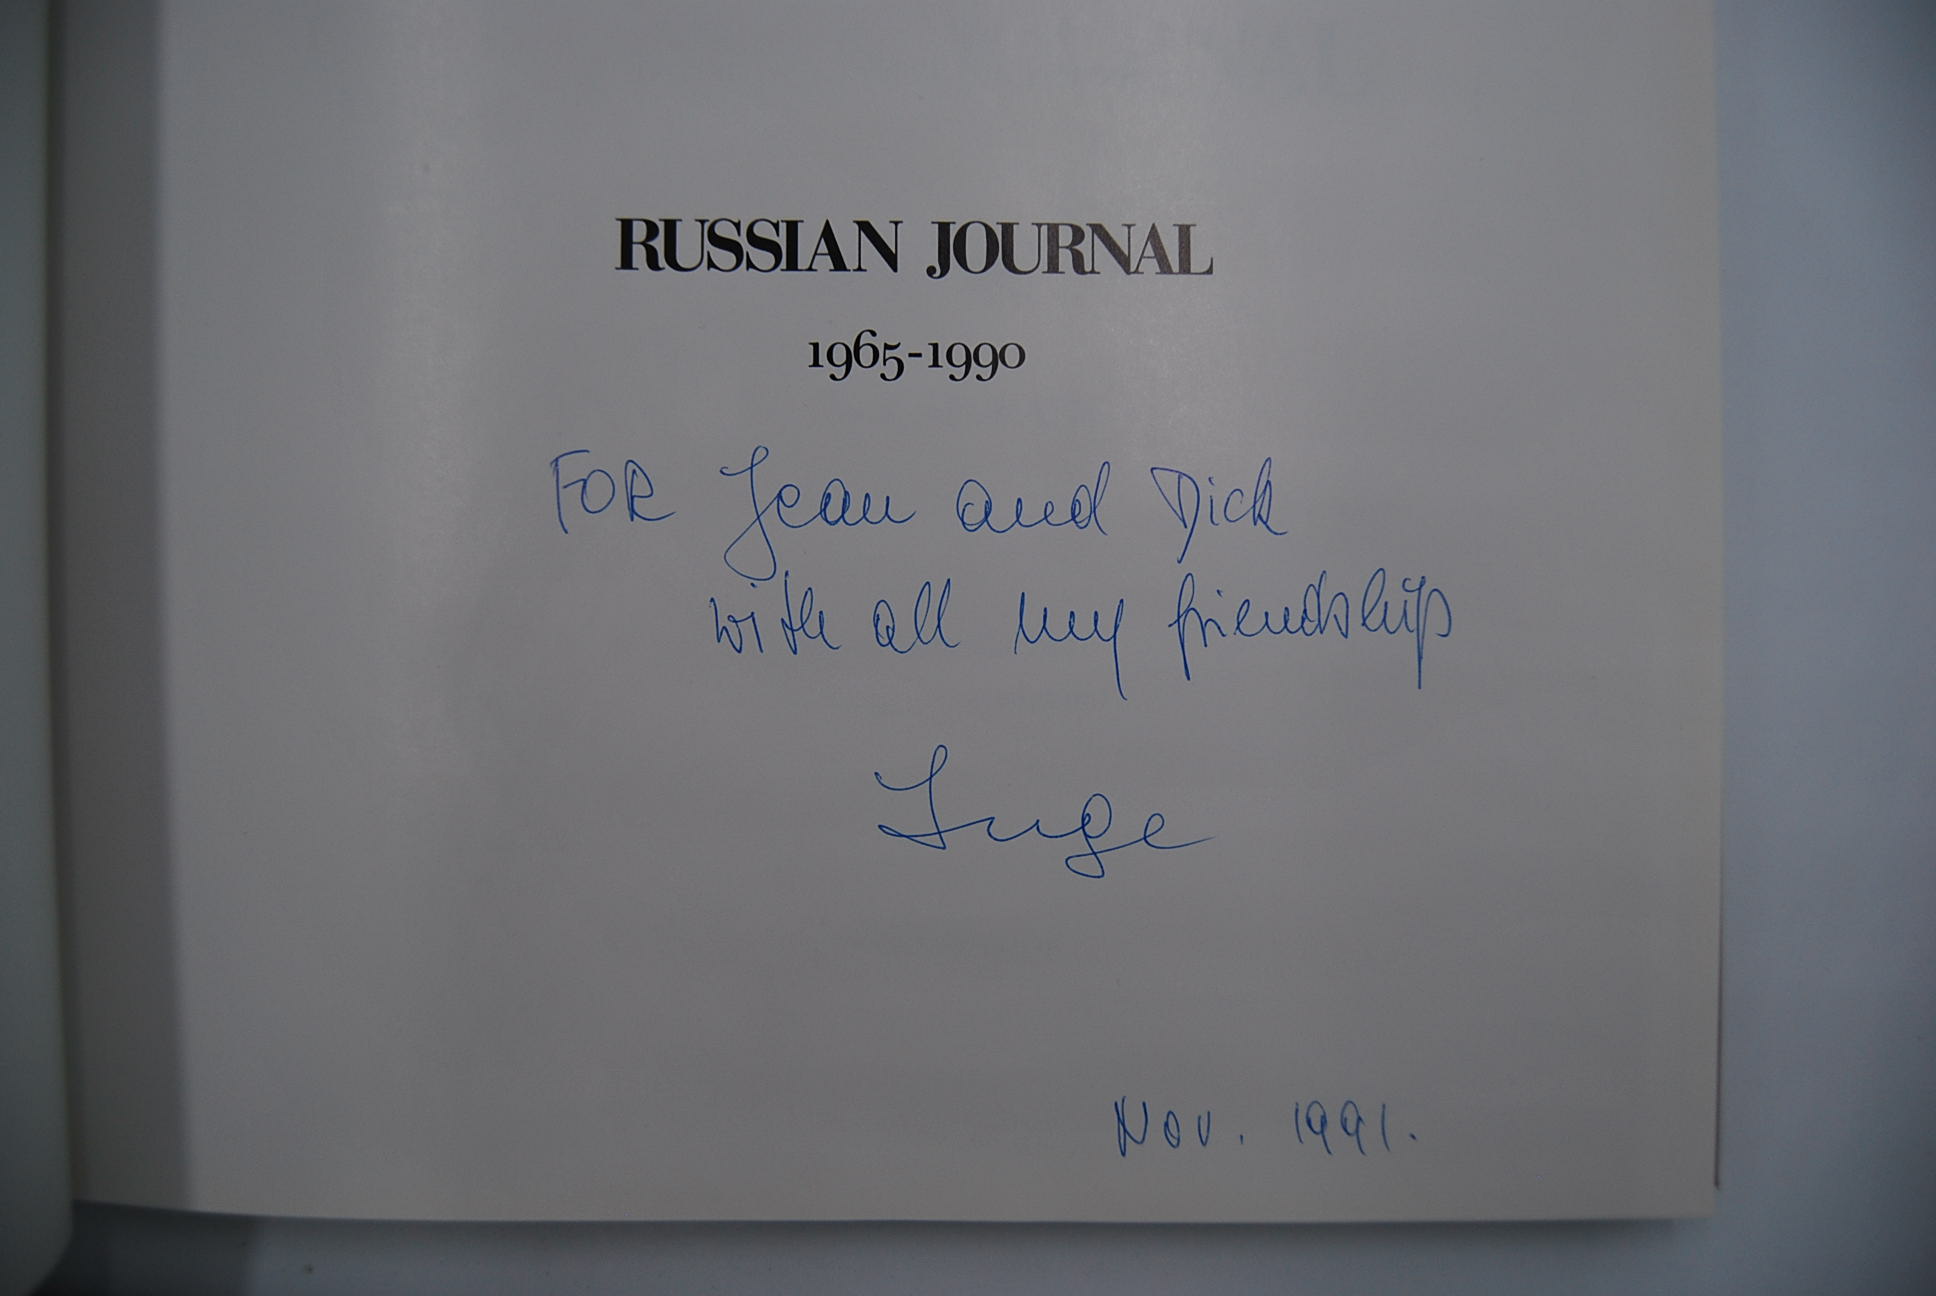 RUSSIAN JOURNAL
1965-1990
FOR Jean and Dick
with all my friendship
Inge
Nov. 1991.